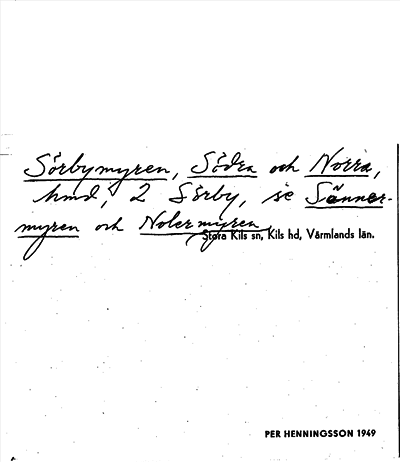 Sörbymyren, Södra och Norra,
hmd, 2 Sörby, se Sönner-
myren och Nolermyren
Stora Kils sn, Kils hd, Värmlands län.
PER HENNINGSSON 1949